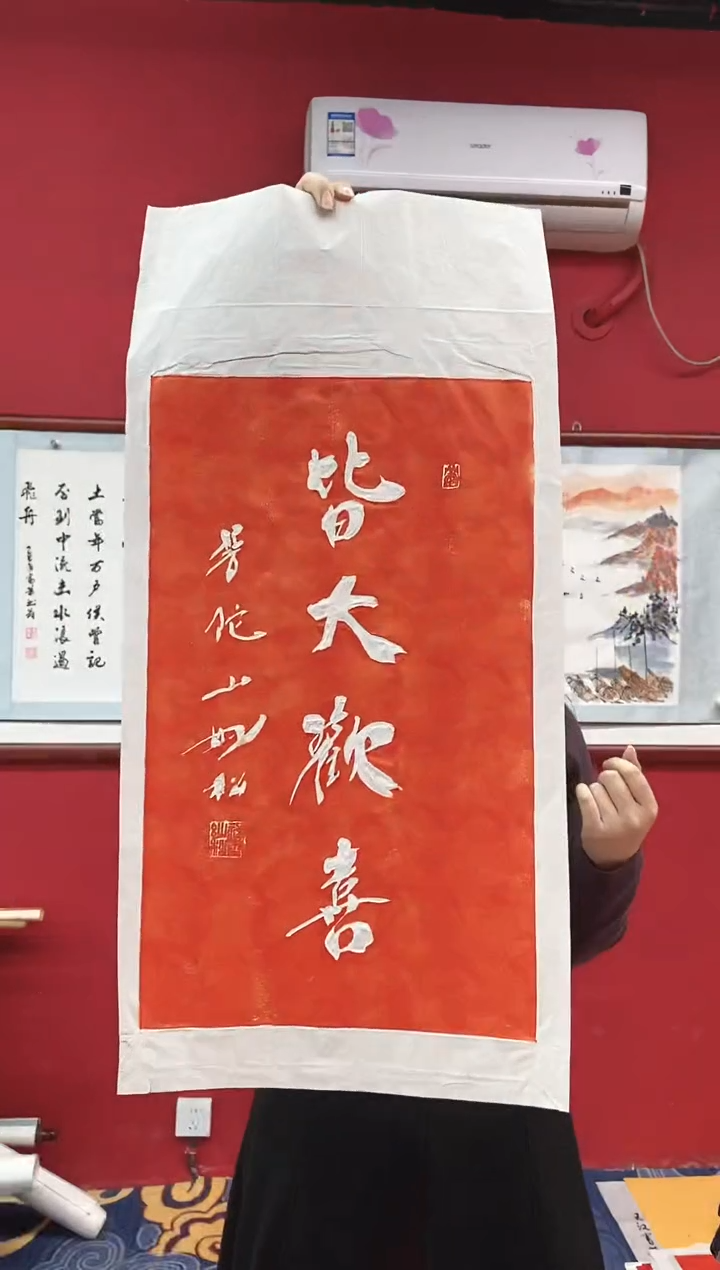 皆大歡喜
普陀山妙松
土當年万户侯曾記
否到中流击水浪遏
飛舟